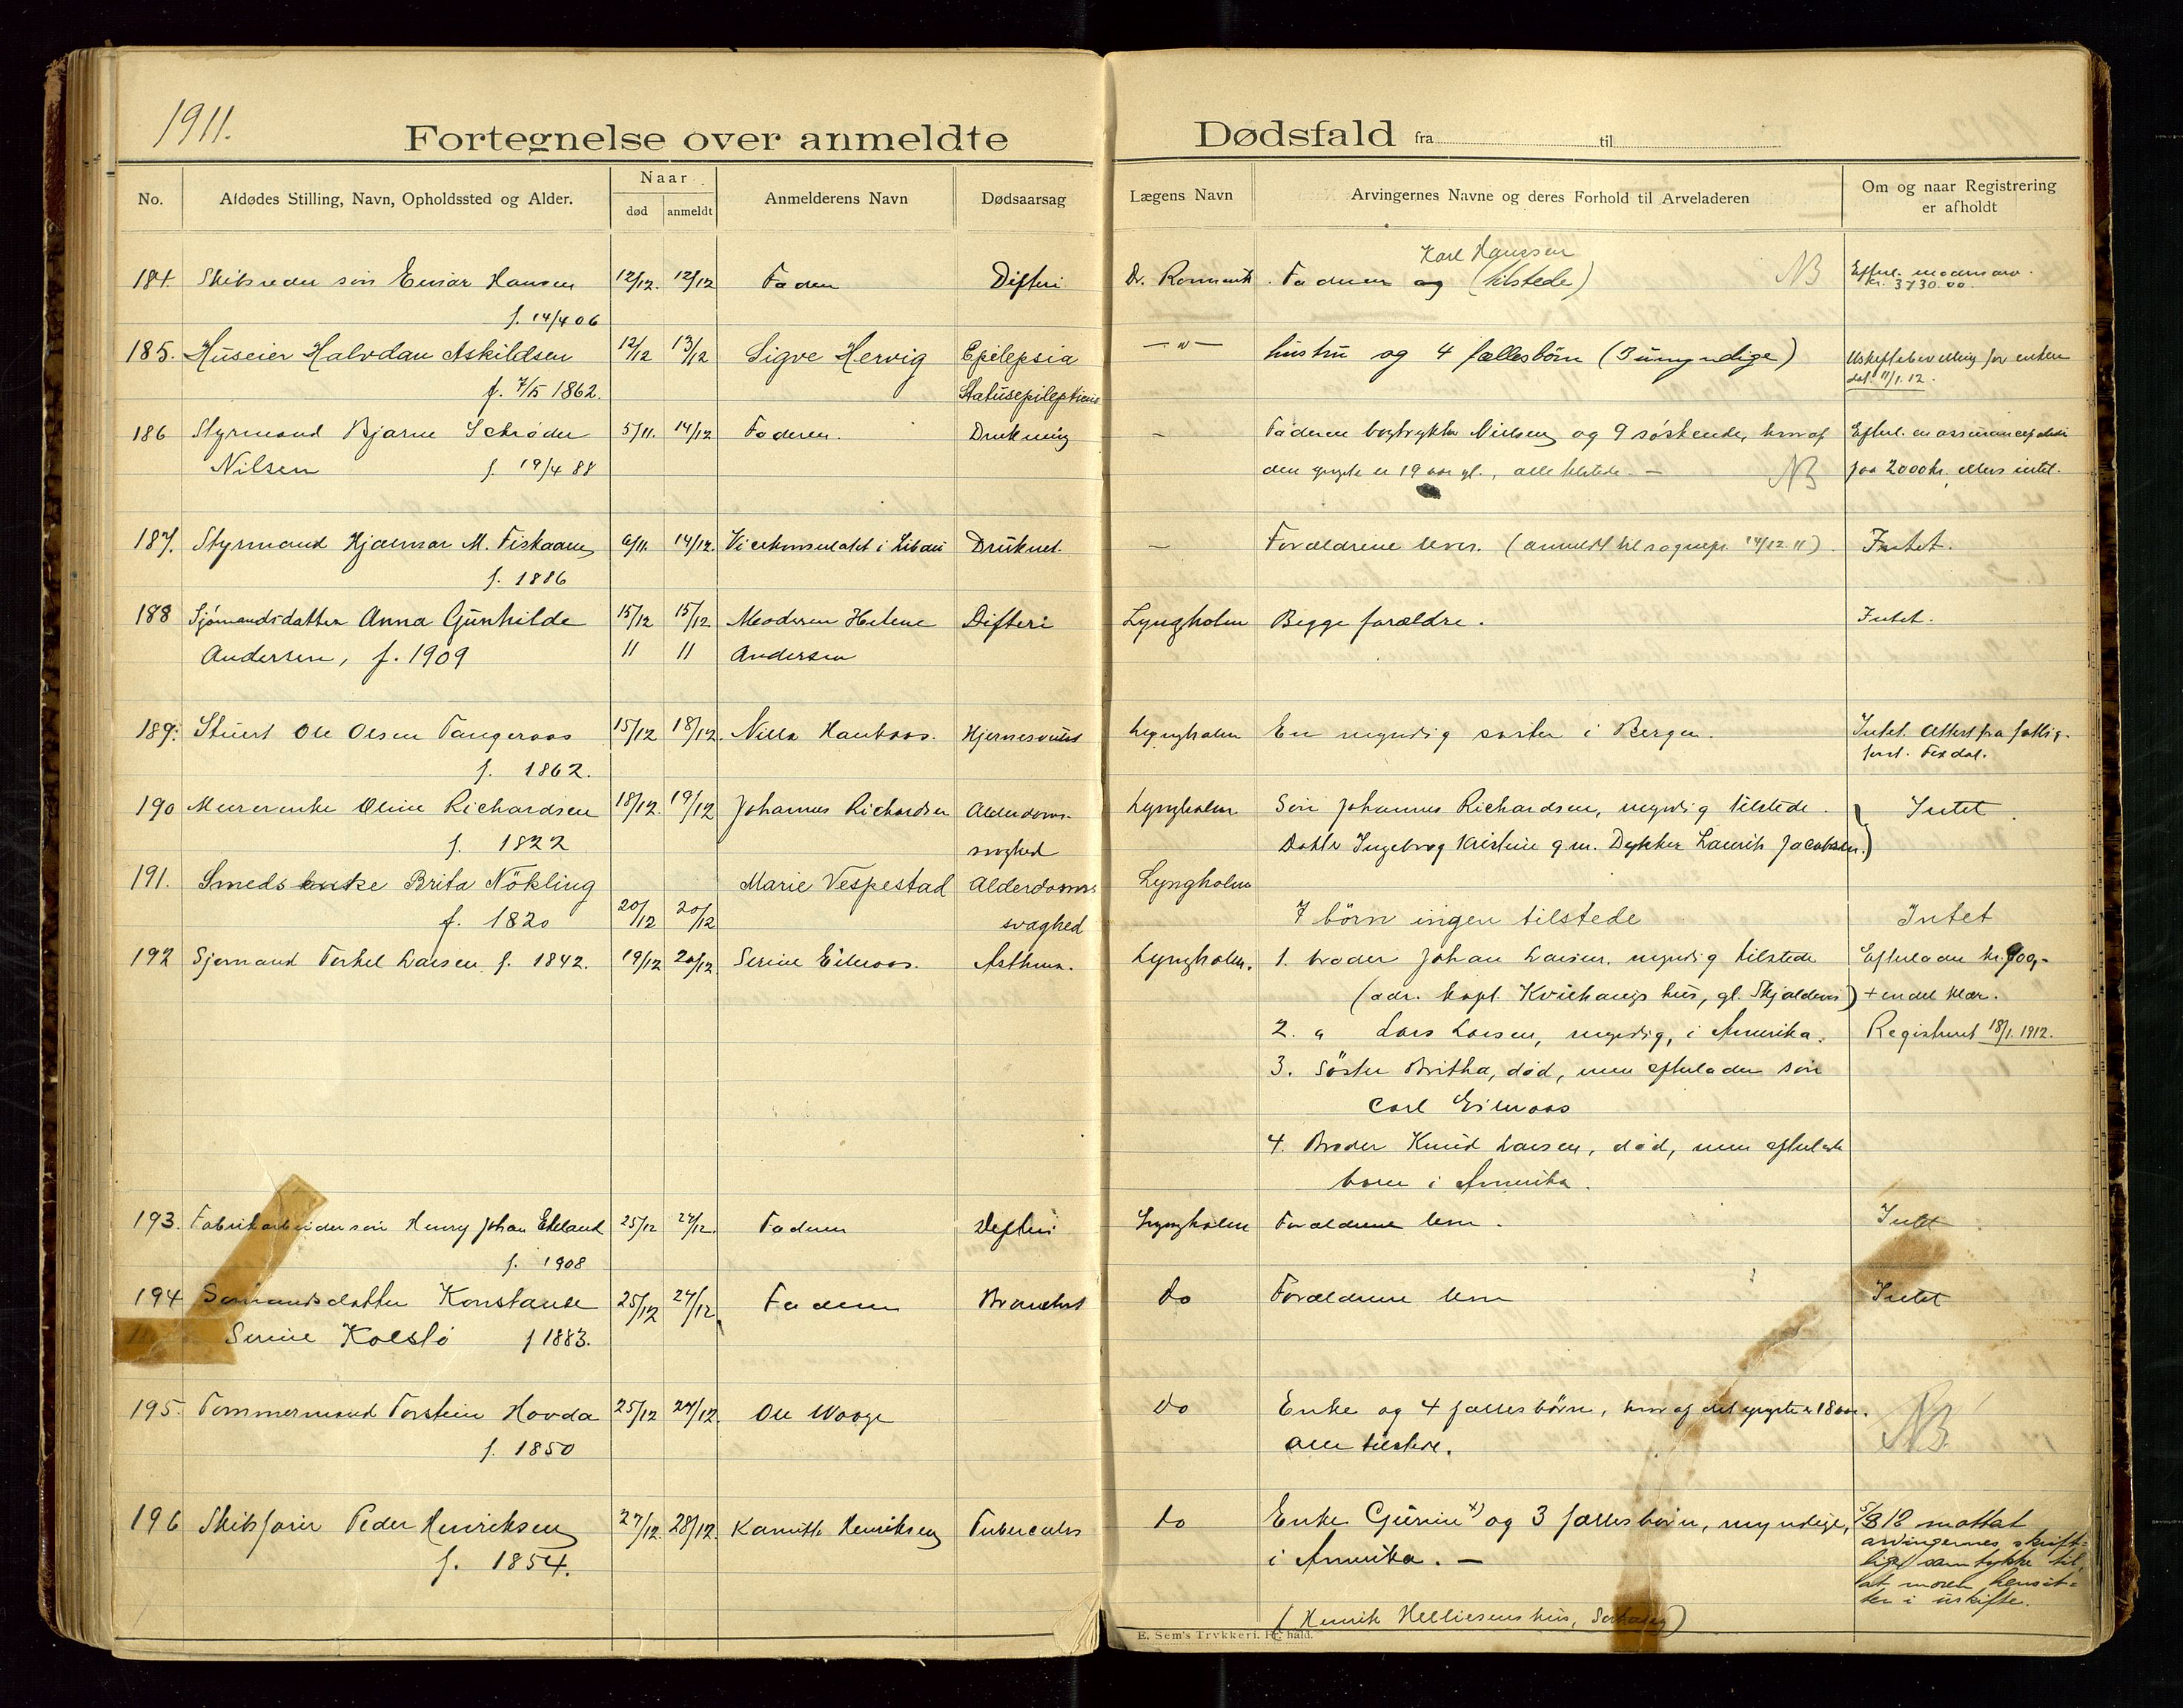 1911.
Fortegnelse over anmeldte Dødsfald fra til
No. Afdødes Stilling, Navn, Opholdssted og Alder. Naar død anmeldt Anmelderens Navn Dødsaarsag Lægens Navn Arvingernes Navne og deres Forhold til Arveladeren Om og naar Registrering er afholdt
Karl Hanssen
184. Skibsreder søn Einar Hansen 12/12. 12/12 Faderen Difteri Dr. Faderen og (tilstede) NB Efterl. modersarv
f. 14/4 06 kr. 3730.00.
185. Huseier Halvdan Askildsen 12/12 13/12 Sigve Hervig Epilepsia —"— hustru og 4 fællesbörn (3 umyndige) Uskiftebevilling for enken
f. 7/5 1862. Statusepilepticus dat. 11/1.12.
186 Styrmand Bjarne Schrøder 5/11. 14/12 Faderen. Drukning – Faderen bogtrykker Nielsen og 9 søskende, hvoraf Efterl. en assurancepolise
Nilsen f. 19/4 88 den yngste er 19 aar gl., alle tilstede. – NB paa 2000 kr. ellers intet.
187. Styrmand Hjalmar M. Fiskaaen 6/11. 14/12. Vicekonsulatet i Libau Druknet. – Forældrene lever. (anmeldt til sognepr. 14/12 11) Intet.
f. 1886
188 Sjömandsdatter Anna Gunhilde 15/12 15/12 Moderen Helene Difteri Lyngholm Begge forældre. Intet.
Andersen, f. 1909 11 11 Andersen
189. Stuert Ole Olsen Tangeraas 15/12 18/12. Nilla Hauboas. Lyngholm En myndig søster i Bergen. Intet. Attest fra fattig-
f. 1862.
190 Murerenke Oline Richardsen 18/12. 19/12 Johannes Richardsen Alderdoms- Lyngholm Søn Johannes Richardsen, myndig tilstede. Intet.
f. 1822 svaghed Datter Ingeborg Kristine g.m. Dykker Laurits Jacobsen.)
191. Smedsenke Brita Nökling Marie Vespestad Alderdoms Lyngholm
f. 1820 20/12 20/12 svaghed 7 börn ingen tilstede Intet
192 Sjömand Torkel Larsen f. 1842. 19/12 20/12 Serine Eileraas. Asthma. Lyngholm. 1. broder Johan Larsen, myndig tilstede Efterlader kr. 900,-
(adr. kapt. Kvilhaugs hus, gl. Skjoldevei) + endel klær.
2. " Lars Larsen, myndig, i Amerika. Registreret 18/1.1912.
3. Söster Britha, død, men efterlader søn
Carl Eileraas
4. Broder Knud Larsen, død, men efterladt
børn i Amerika.
193. Fabrikarbeider søn Henry Johan Ekeland 25/12 27/12. Faderen Difteri Lyngholm Forældrene leve. Intet
f. 1908
194 Sømandsdatter Konstanse 25/12 27/12. Faderen do Forældrene leve Intet
Serine Kolstö f 1883.
195. Tømmermand Torstein Hovda 25/12 27/12. Ole Waage – do Enke og 4 fællesbörn, hvoraf det yngste er 18 aar. NB.
f. 1850 alle tilstede.
196 Skibsfører Peder Henriksen 27/12. 28/12. Kamitla Henriksen Tuberculos do Enke Gurine x) og 3 fællesbörn, myndige, 5/3 12 mottat
f. 1854. i Amerika. – arvingernes skrift-
lige samtykke til
at moren hensit-
ter i uskifte.
(Henrik Helliesens hus,
E. Sem's Trykkeri. Fr.hald.